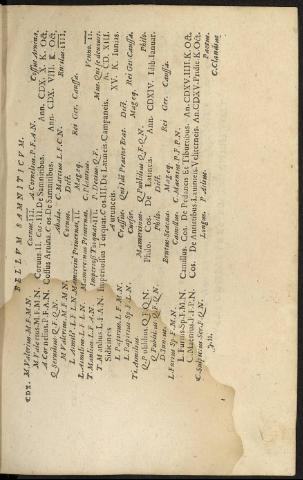 BELLVM SAMNITICVM.
CDX. M Valerius M. F. M. N. Coruus. III. A Cornelius P. F. A. N. Cossus Aruina.
M Valerius. M. F. M. N. Coruus. II. Cos. III. De Samnitibus. Ann. CDX. X. K. Oct.
A Cornelius. P. F. A. N. Cossus Aruina. Cos. De Samnitibus. Ann. CDX. VIII. K. Oct.
Q Seruilius Q. F. Q. N. Ahala. C Marcius L. F. C. N. Rutilus. IIII.
M Valerius. M. F. M. N. Coruus. Dict.
L. Aemili' L. F. L. N. Mamercin' Priuernas. II. Mag eq. Rei Ger. Caussa.
L Aemilius L. F. L. N. Mamercinus Priuernas. C Plautius. Venno. II.
T Manlius L. F. A. N. Imperioss' Torquat. III. P. Decius Q. F. Mus. Qui se deuouit.
T Manlius L. F. A. N Imperiosus Torquat. Cos. III. De Latineis Campaneis. An. CD. XIII.
Sidicineis Aurunceis. XV. K Iunias.
L Papirius. L. F. M. N. Crassus. Qui Idē Praetor Erat. Dict.
L Papirius Sp. F. L. N. Cursor. Mag eq. Rei Ger. Caussa.
Ti. Aemilius Mamercinus. Q Publilius Q. F. Q. N. Philo.
Q Publilius Q. F. Q. N. Philo. Cos. De Latineis. Ann CDXIV. Idib. Ianuar.
Q Publilius Q. F. Q. N. Philo. Dict.
D Iunius Brutus Scaeua. Mag eq. Rei Ger. Caussa.
L Furius Sp. F. M. N. Camillus. C Maenius. P. F. P. N.
L Furius Sp. F. M. N. Camillus. Cos. De Pedaneis Et Tiburtibus. An CDXV. IIII. K Oct.
C Maenius. P. F. P. N. Cos. De Antiatibus Lanuineis Veliterneis. An CDXV. Pridie K Oct.
C Sulpicius Ser. F. Q. N. Longus. P Aelius. Paetus.
C Claudius.